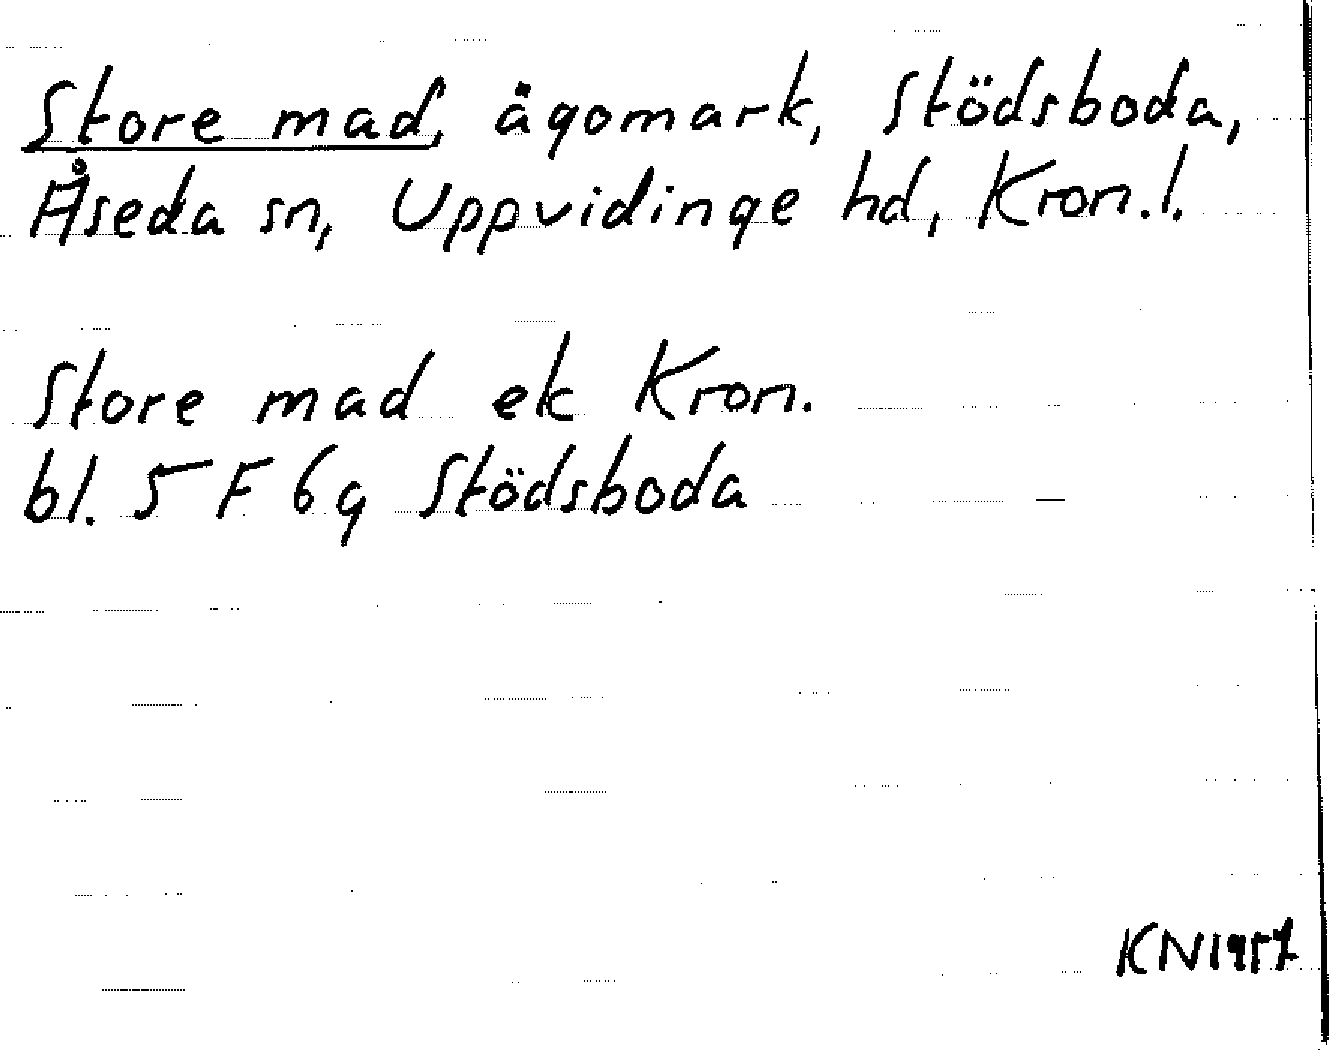 Store mad, ägomark, Stödsboda,
Åseda sn, Uppvidinge hd, Kron.l.
Store mad ek Kron.
bl. 5 F 6g Stödsboda
KN1957